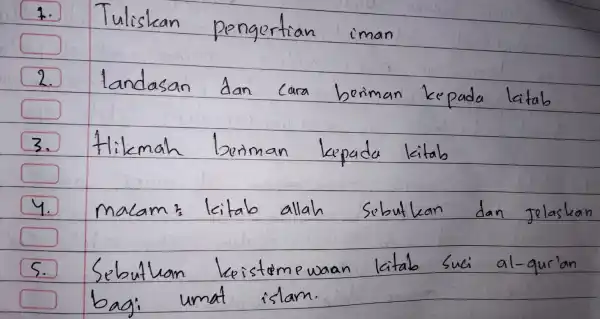 1. Tuliskan pengertian iman
2. landasan dan cara beriman kepada kitab
3. Hikmah beriman kepada kitab
4. macam2 kitab allah Sebutkan dan Jelaskan
5. Sebutkan keistemewaan kitab suci al-qur'an
bagi umat islam.